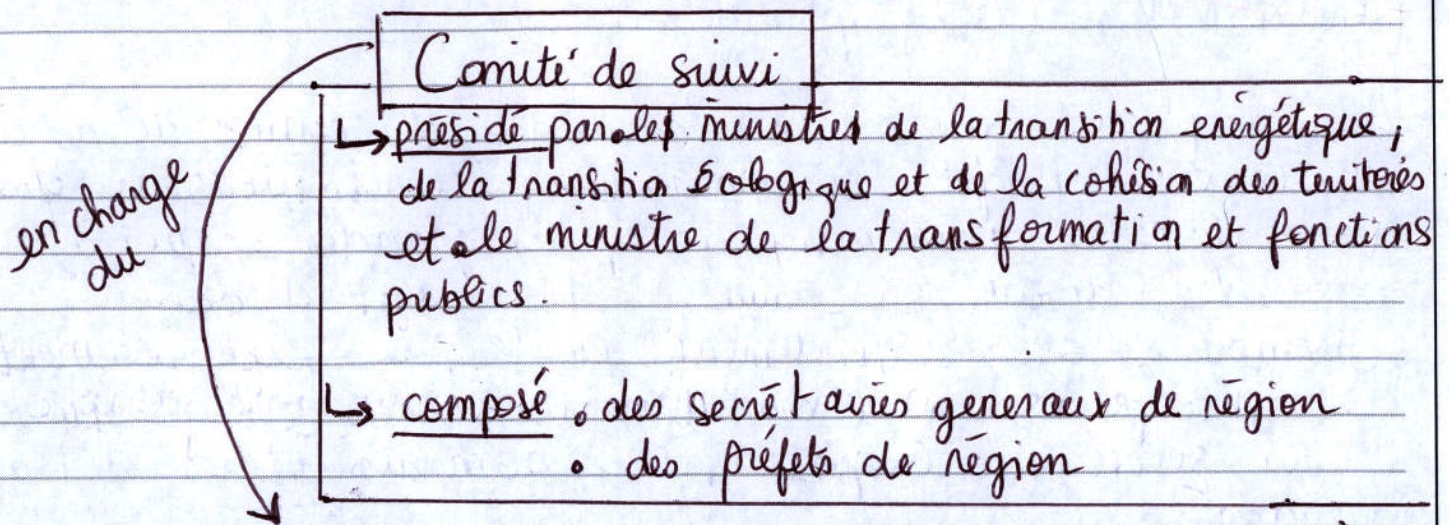 Comité de suivi
en charge
du
↳ présidé par • les ministres de la transition énergétique,
de la transition écologique et de la cohésion des territoires
et • le ministre de la transformation et fonctions
publics.
↳ composé • des secrétaires generaux de région
• des préfets de région